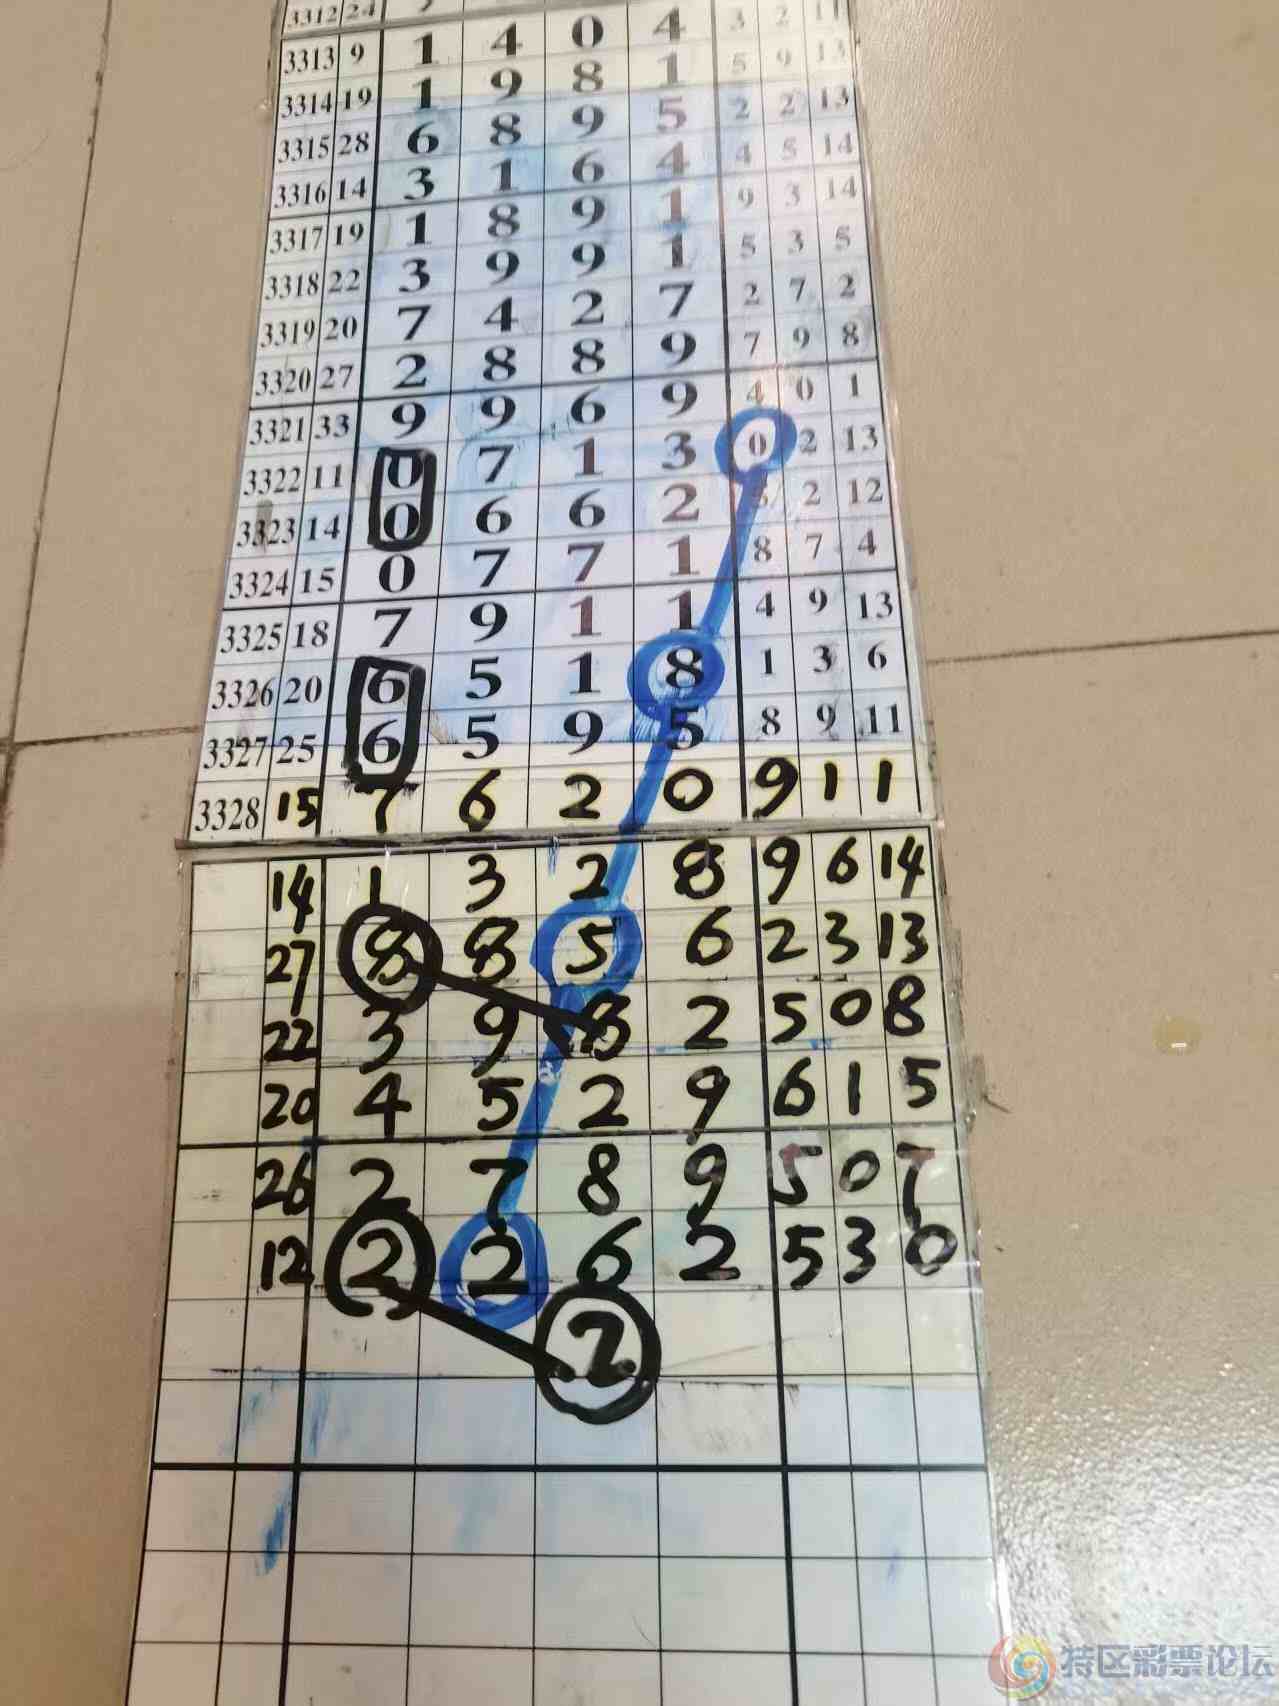 3312 24
3313 9 1 4 0 4 3 2 11
3314 19 1 9 8 1 5 9 13
3315 28 6 8 9 5 2 2 13
3316 14 3 1 6 4 4 5 14
3317 19 1 8 9 1 9 3 14
3318 22 3 9 9 1 5 3 5
3319 20 7 4 2 7 2 7 2
3320 27 2 8 8 9 7 9 8
3321 33 9 9 6 9 4 0 1
3322 11 0 7 1 3 0 2 13
3323 14 0 6 6 2 2 12
3324 15 0 7 7 1 8 7 4
3325 18 7 9 1 1 4 9 13
3326 20 6 5 1 8 1 3 6
3327 25 6 5 9 5 8 9 11
3328 15 7 6 2 0 9 1 1
14 1 3 2 8 9 6 14
27 8 8 5 6 2 3 13
22 3 9 8 2 5 0 8
20 4 5 2 9 6 1 5
26 2 7 8 9 5 0 7
12 2 2 6 2 5 3 0
2
特区彩票论坛